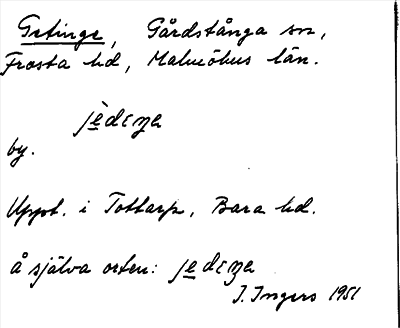 Getinge, Gårdstånga sn,
Frosta hd, Malmöhus län.
jèdɛŋa
by.
Uppt. i Tottarp, Bara hd.
å själva orten: jedɛŋa
I. Ingers 1951